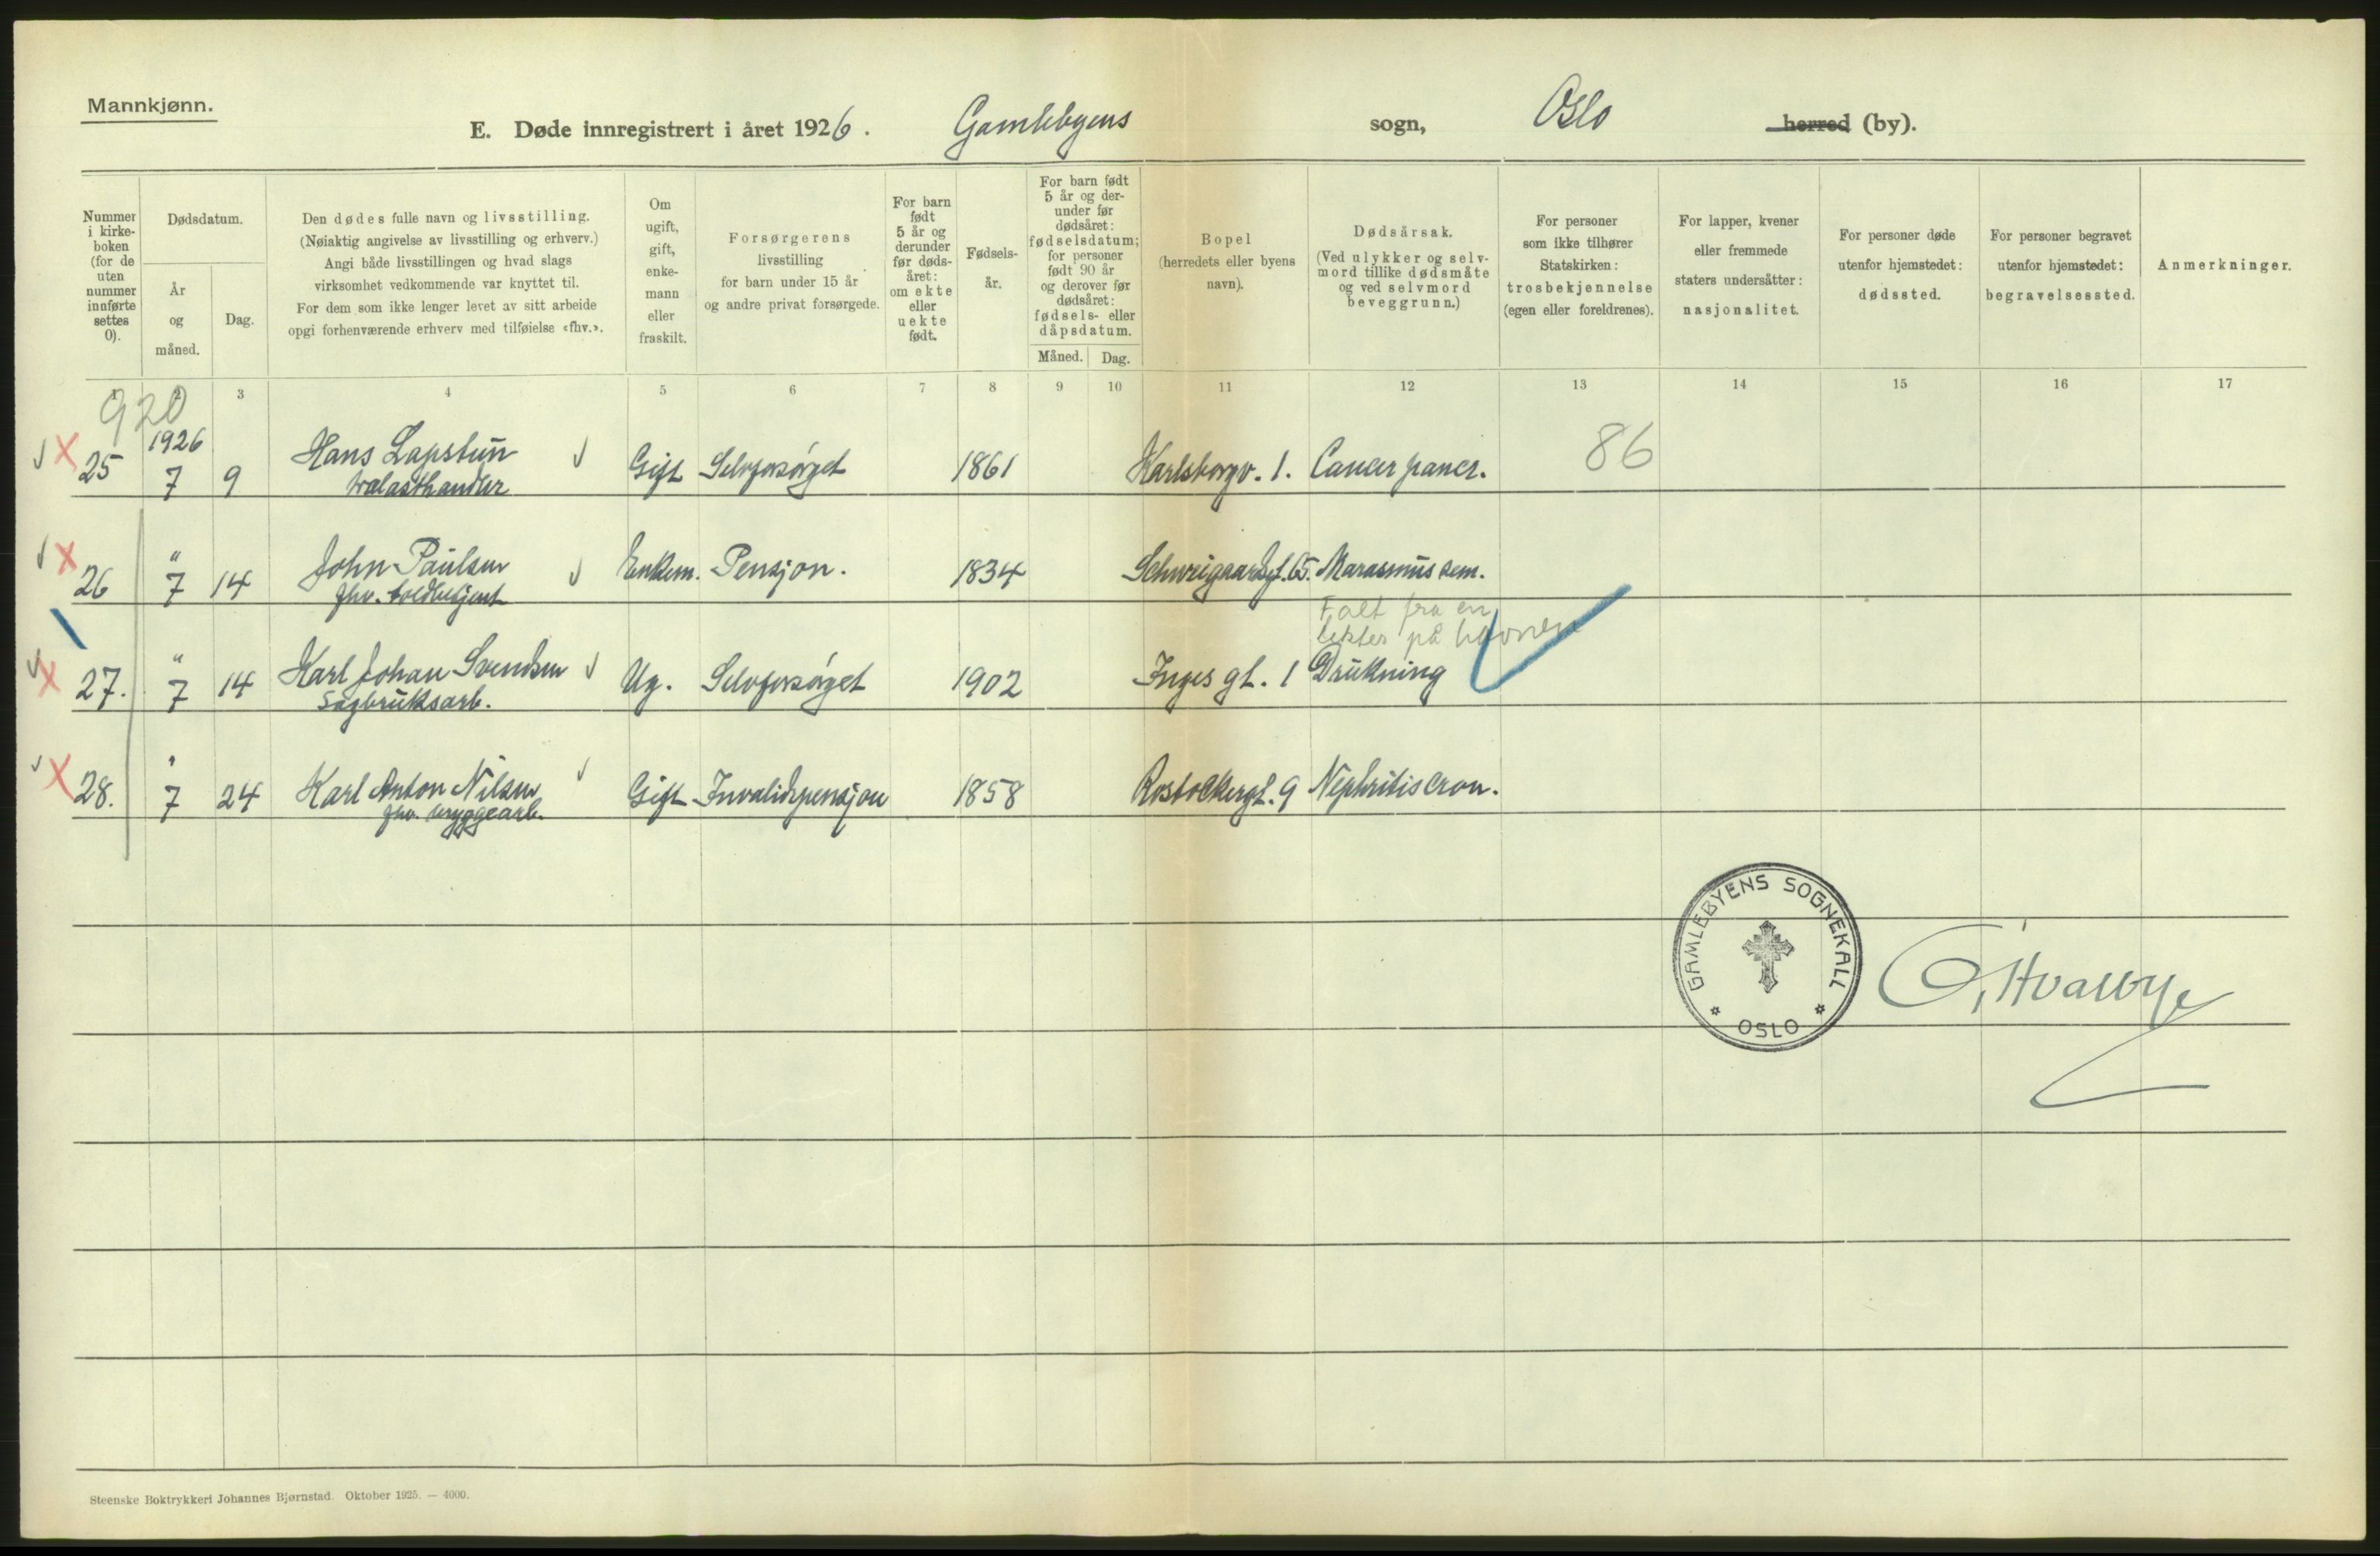 Mannkjønn.
E. Døde innregistrert i året 1926. Gamlebyens sogn, Oslo herred (by).
Nummer i kirke-boken (for de uten nummer innførte settes 0).
Dødsdatum.
År og måned.
Dag.
Den dødes fulle navn og livsstilling.
(Nøiaktig angivelse av livsstilling og erhverv.)
Angi både livsstillingen og hvad slags
virksomhet vedkommende var knyttet til.
For dem som ikke lenger levet av sitt arbeide
opgi forhenværende erhverv med tilføielse «fhv.».
Om ugift, gift, enke-mann eller fraskilt.
Forsørgerens
livsstilling
for barn under 15 år
og andre privat forsørgede.
For barn født 5 år og derunder før døds-året: om ekte eller uekte født.
Fødsels-år.
For barn født 5 år og der-under før dødsåret: fødselsdatum; for personer født 90 år og derover før dødsåret: fødsels- eller dåpsdatum.
Måned. Dag.
Bopel
(herredets eller byens navn).
Dødsårsak.
(Ved ulykker og selv-mord tillike dødsmåte og ved selvmord beveggrunn.)
For personer som ikke tilhører Statskirken: trosbekjennelse (egen eller foreldrenes).
For lapper, kvener eller fremmede staters undersåtter: nasjonalitet.
For personer døde utenfor hjemstedet: dødssted.
For personer begravet utenfor hjemstedet: begravelsessted.
Anmerkninger.
1 2 3 4 5 6 7 8 9 10 11 12 13 14 15 16 17
920
1926
25 7 9 Hans Lapstun Gift Selvforsørget 1861 Karlsborgv. 1. Cancer pancr. 86
26 " 7 14 John Paulsen Enkem. Pensjon. 1834 Schweigaardsgt. 65. Marasmus sem.
fhv. toldbetjent
Falt fra en
lekter på havnen
27. " 7 14 Karl Johan Svendsen Ug. Selvforsørget 1902 Inges gt. 1 Drukning
Sagbruksarb.
28. " 7 24 Karl Anton Nilsen Gift Invalidepensjon 1858 Rostockergt. 9 Nephritis cron.
fhv. bryggearb.
GAMLEBYENS SOGNEKALL
OSLO
Steenske Boktrykkeri Johannes Bjørnstad. Oktober 1925. — 4000.